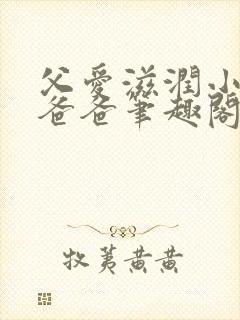 父愛滋潤小
爸爸筆趣閣
牧荑黃黃